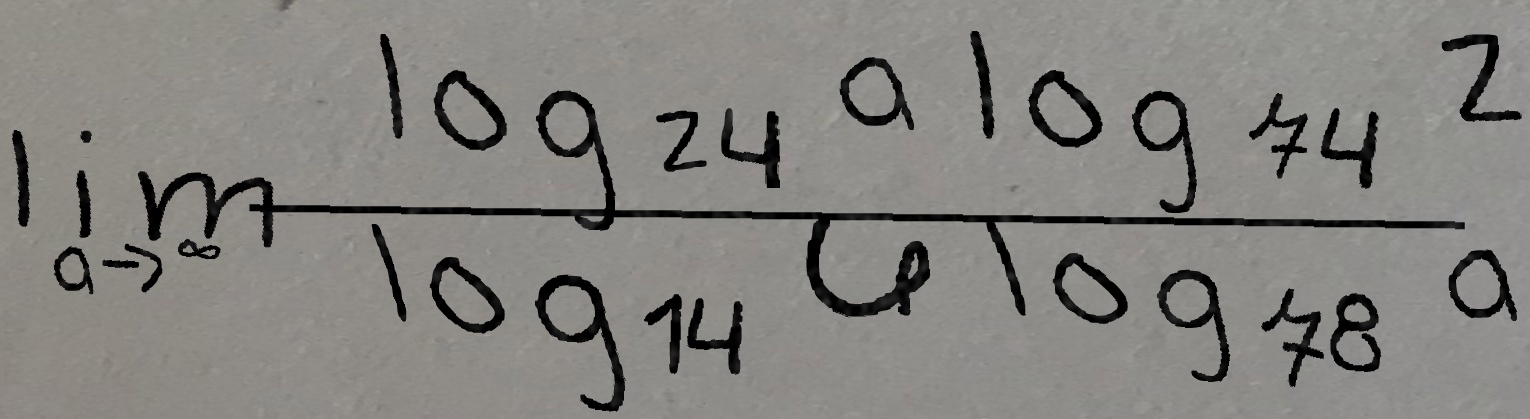 \lim_{a \to \infty} \frac{\log_{24} a \log_{74} 2}{\log_{14} 6 \log_{78} a}